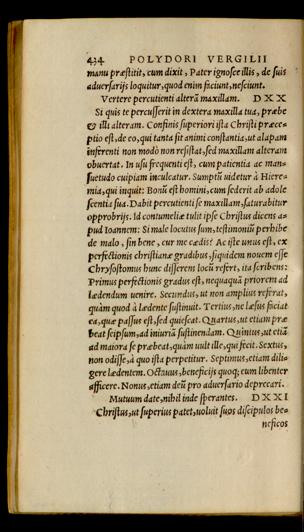 434 POLYDORI VERGILII
manu præstitit, cum dixit, Pater ignosce illis, de suis
aduersarijs loquitur, quod enim faciunt, nesciunt.
Vertere percutienti alterā maxillam. DXX
Si quis te percusserit in dextera maxilla tua, præbe
& illi alteram. Confinis superiori ista Christi præce-
ptio est, de eo, qui tanta sit animi constantia, ut alapam
inferenti non modò non resistat, sed maxillam alteram
obuertat. In usu frequenti est, cum patientia ac man-
suetudo cuipiam inculcatur. Sumptū uidetur à Hiere-
mia, qui inquit: Bonū est homini, cum sederit ab adole
scentia sua. Dabit percutienti se maxillam, saturabitur
opprobrijs. Id contumeliæ tulit ipse Christus dicens a-
pud Ioannem: Si male locutus sum, testimoniū perhibe
de malo, sin bene, cur me cædis? Ac iste unus est, ex
perfectionis christianæ gradibus, siquidem nouem esse
Chrysostomus hunc disserens locū refert, ita scribens:
Primus perfectionis gradus est, nequaquā priorem ad
lædendum uenire. Secundus, ut non amplius referat,
quàm quod à lædente sustinuit. Tertius, ne læsus faciat
ea, quæ passus est, sed quiescat. Quartus, ut etiam præ
beat seipsum, ad iniuriā sustinendam. Quintus, ut etiā
ad maiora se præbeat, quàm uult ille, qui fecit. Sextus,
non odisse, à quo ista perpetitur. Septimus, etiam dili-
gere lædentem. Octauus, beneficijs quoq; eum libenter
afficere. Nonus, etiam deū pro aduersario deprecari.
Mutuum date, nihil inde sperantes. DXXI
Christus, ut superius patet, uoluit suos discipulos be-
neficos